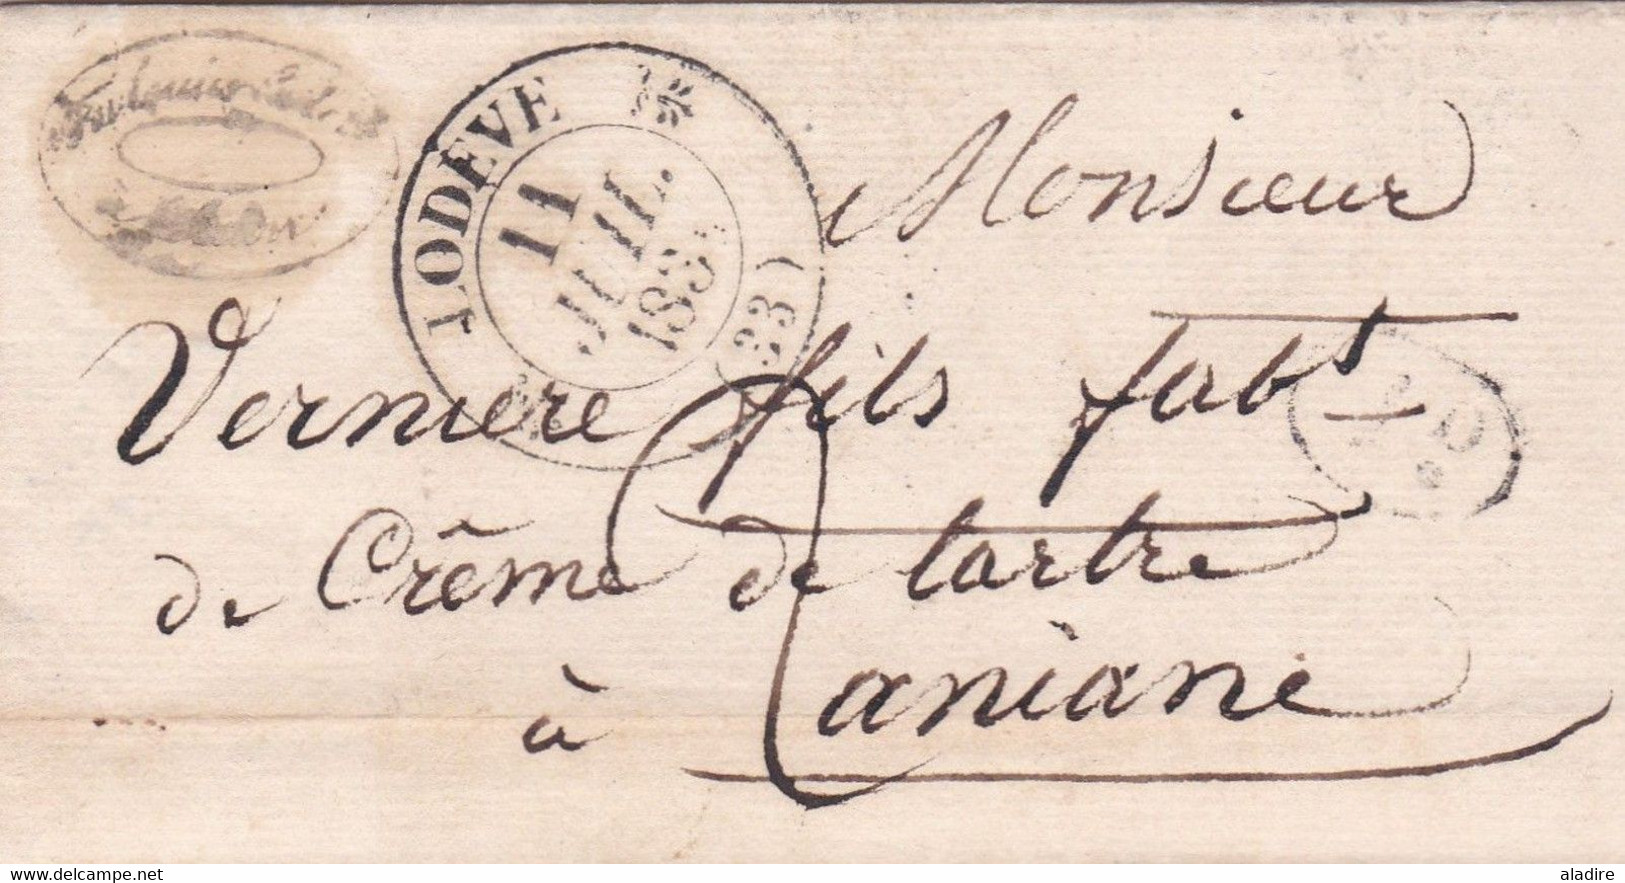 LODEVE
11
JUIL.
183
(33)
Monsieur
Verniere fils fabt
de Crême de tartre
à aniane
delcampe.net
aladire